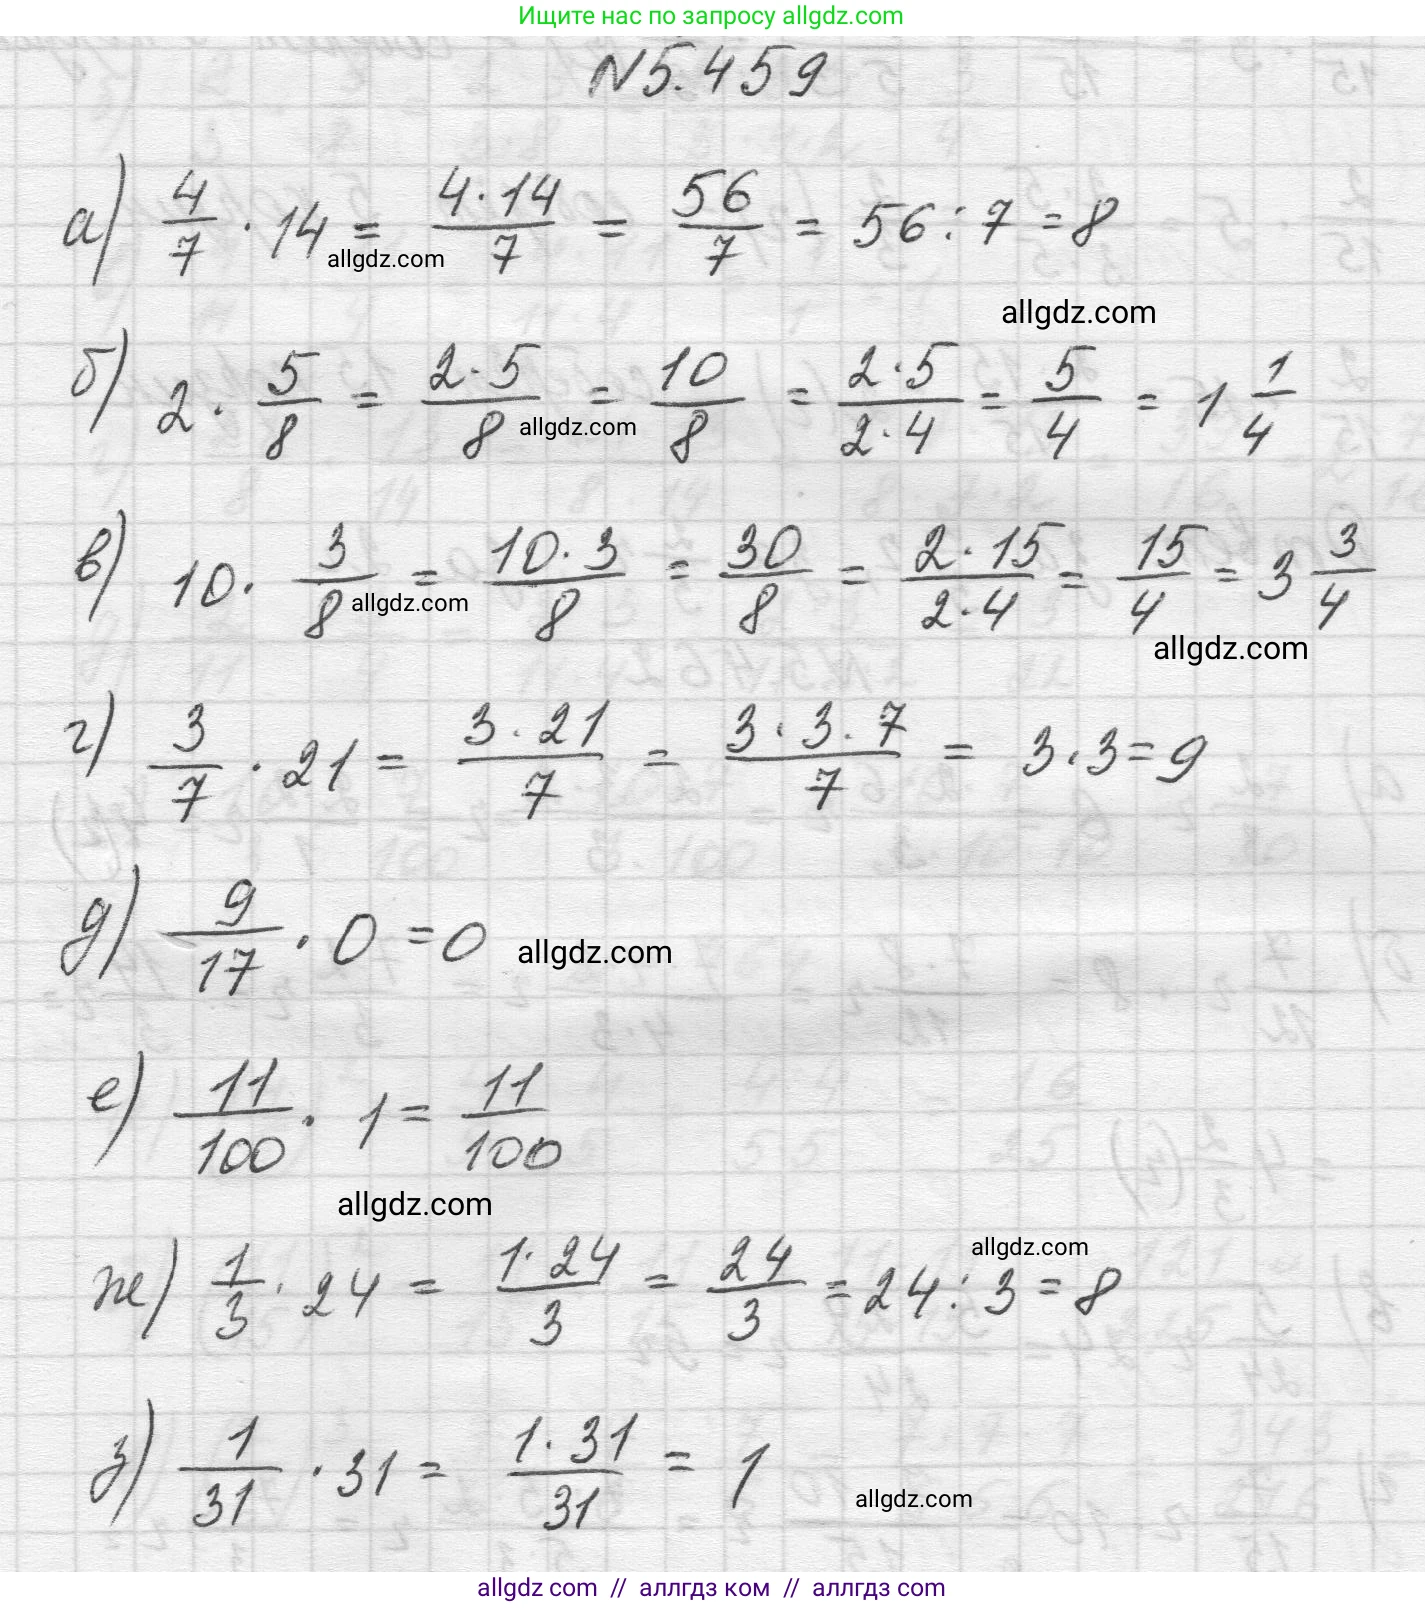 Ищите нас по запросу allgdz.com
№5.459
а) 4/7 · 14 = 4·14/7 = 56/7 = 56:7 = 8
allgdz.com
allgdz.com
б) 2 · 5/8 = 2·5/8 = 10/8 = 2·5/2·4 = 5/4 = 1 1/4
allgdz.com
в) 10 · 3/8 = 10·3/8 = 30/8 = 2·15/2·4 = 15/4 = 3 3/4
allgdz.com
allgdz.com
г) 3/7 · 21 = 3·21/7 = 3·3·7/7 = 3·3=9
д) 9/17 · 0 = 0
allgdz.com
е) 11/100 · 1 = 11/100
allgdz.com
allgdz.com
ж) 1/3 · 24 = 1·24/3 = 24/3 = 24:3 = 8
з) 1/31 · 31 = 1·31/31 = 1
allgdz.com
allgdz com // аллгдз ком // аллгдз com